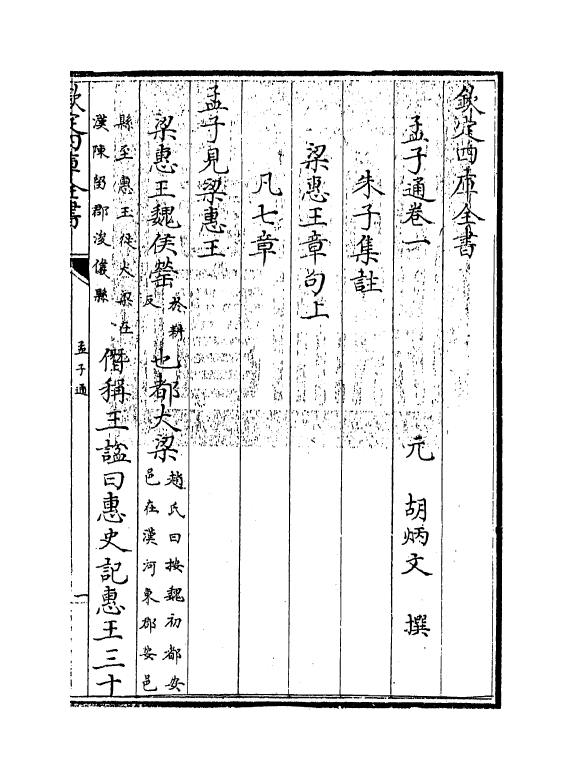 欽定四庫全書
孟子通卷一 元 胡炳文 撰
朱子集註
梁惠王章句上
凡七章
孟子見梁惠王
梁惠王魏侯罃扵耕反也都大梁趙氏曰按魏初都安邑在漢河東郡安邑
縣至惠王徙大梁在漢陳留郡浚儀縣僭稱王諡曰惠史記惠王三十
欽定四庫全書 孟子通 一